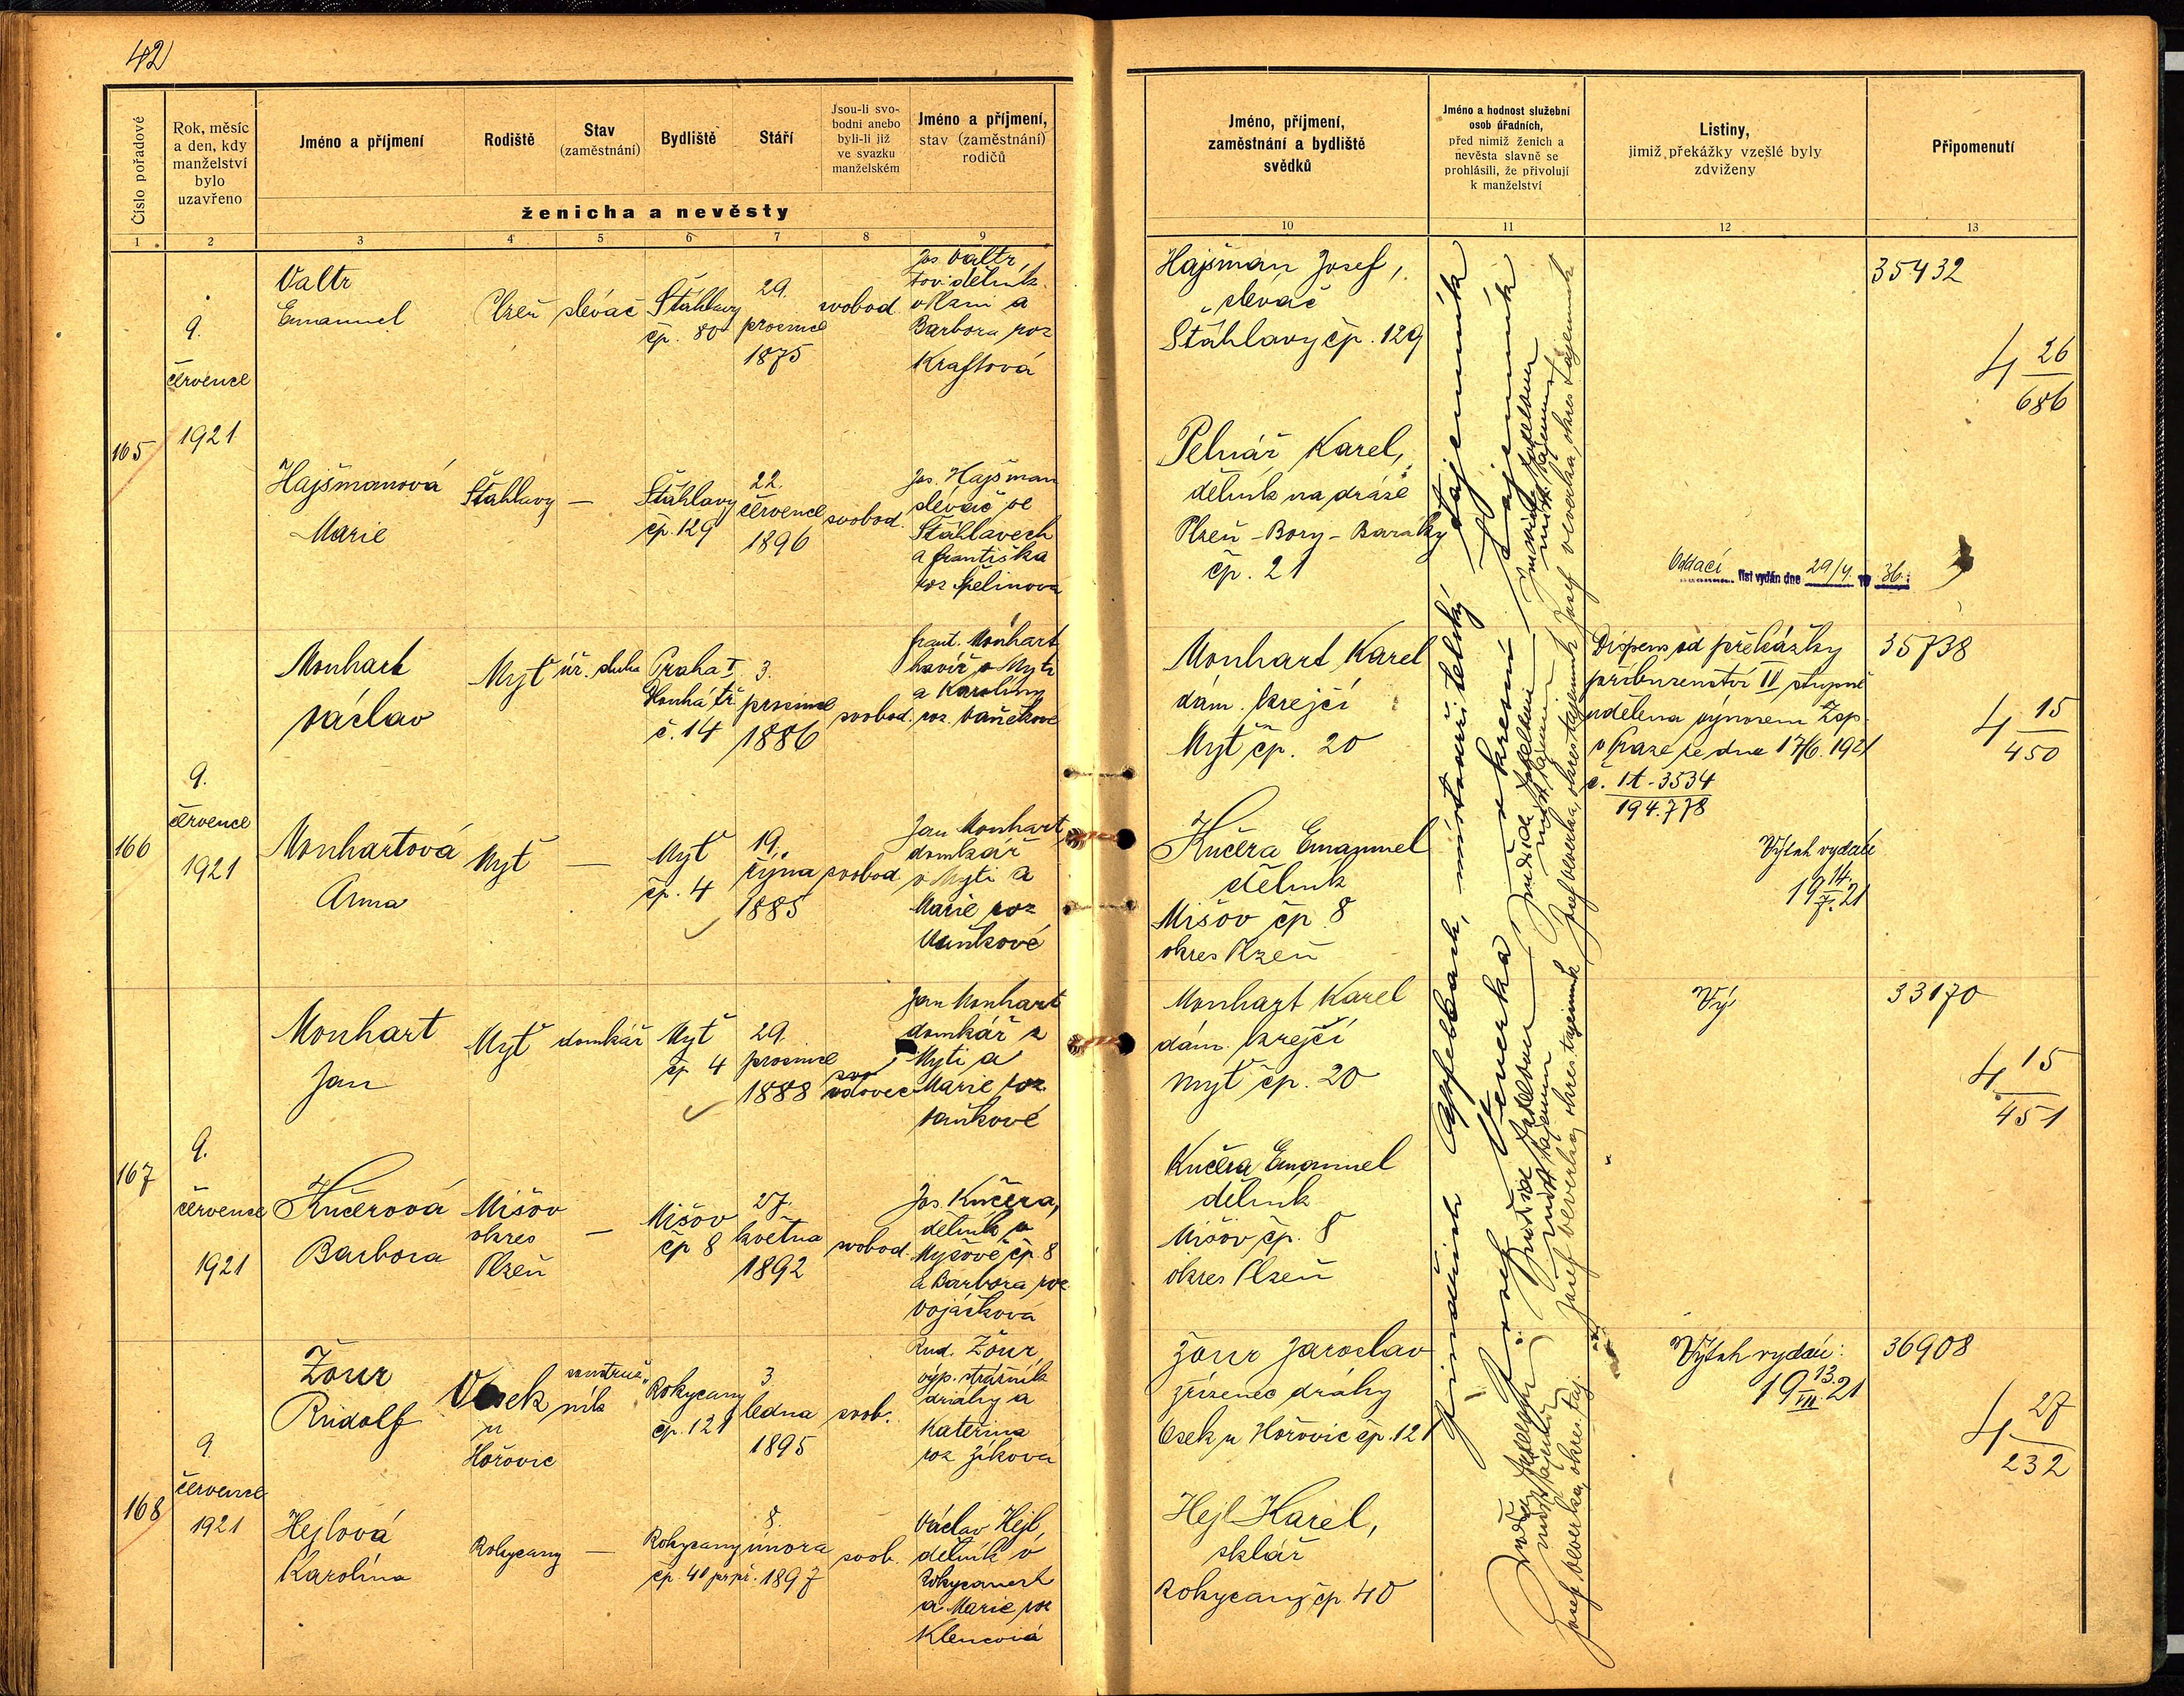 42
Číslo pořadové
Rok, měsíc
a den, kdy
manželství
bylo
uzavřeno
Jméno a příjmení
Rodiště
Stav
(zaměstnání)
Bydliště
Stáří
Jsou-li svo-
bodni anebo
byli-li již
ve svazku
manželském
Jméno a příjmení,
stav (zaměstnání)
rodičů
ženicha a nevěsty
1 2 3 4 5 6 7 8 9
165
9.
července
1921
Valtr
Emanuel
Plzeň
slévač
Šťáhlavy
čp. 80
29.
prosince
1875
svobod
Jos Valtr,
tov. dělník
v Plzni a
Barbora roz
Kraftová
Hajšmanová
Marie
Šťáhlavy
—
Šťáhlavy
čp. 129
22.
července
1896
svobod.
Jos. Hajšman
slévač ve
Šťáhlavech
a Františka
roz Špelinova
166
9.
července
1921
Monhart
Václav
Mýť
úř. sluha
Praha I
Dlouhá tř.
č. 14
3.
prosince
1886
svobod.
Frant. Monhart
havíř v Mýti
a Karoliny
roz. Vaňkové
Monhartová
Anna
Mýť
—
Mýť
čp. 4
19.
října
1885
svobod
Jan Monhart,
domkář
v Mýti a
Marie roz
Vaňkové
167
9.
července
1921
Monhart
Jan
Mýť
domkář
Mýť
čp 4
29.
prosince
1888
vdovec
Jan Monhart
domkář z
Mýti a
Marie roz.
Vaňkové
Kučerová
Barbora
Mišov
okres
Plzeň
—
Mišov
čp 8
27.
května
1892
svobod.
Jos. Kučera,
dělník v
Myšově čp. 8
a Barbora roz
Vojáčková
168
9
července
1921
Žour
Rudolf
Osek
u
Hořovic
Rokycany
čp. 121
3
ledna
1895
svob.
Rud. Žour
výp. strážník
dráhy a
Kateřina
roz Zíková
Hejlová
Karolína
Rokycany
—
Rokycany
čp. 40 př. př.
8.
února
1897
svob.
Václav Hejl,
dělník v
Rokycanech
a Marie roz
Klencová
Jméno, příjmení,
zaměstnání a bydliště
svědků
Jméno a hodnost služební
osob úřadních,
před nimiž ženich a
nevěsta slavně se
prohlásili, že přivolují
k manželství
Listiny,
jimiž překážky vzešlé byly
zdviženy
Připomenutí
10 11 12 13
Hajšman Josef,
slévač
Šťáhlavy čp. 129
Pelnář Karel,
dělník na dráze
Plzeň - Bory - Baráky
čp. 21
Oddací list vydán dne 29/4. 19 36.
35432
4 26
686
Monhart Karel
dám. krejčí
Mýť čp. 20
Kučera Emanuel
dělník
Mišov čp. 8
okres Plzeň
Dispens od překážky
příbuzenství IV stupně
udělena výnosem Zsp.
v Praze ze dne 17/6. 1921
č. 1t-3534
194.778
Výtah vydán
14.
19 7. 21
35738
4 15
450
Monhart Karel
dám. krejčí
Mýť čp. 20
Kučera Emanuel
dělník
Mišov čp. 8
okres Plzeň
Vý
33170
4 15
451
Žour Jaroslav
zřízenec dráhy
Osek u Hořovic čp. 121
Hejl Karel,
sklář
Rokycany čp. 40
Výtah vydán:
13.
19 VII. 21
36908
4 27
232
Jindřich Apfelbach, místostaršitelský tajemník
Josef Veverka, okres tajemník
Josef Veverka, okres tajemník
Josef Veverka, okres tajemník
Josef Veverka, okres tajemník
Josef Veverka, okres. taj.